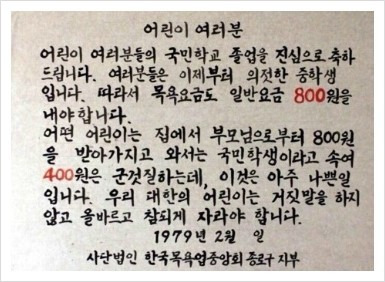 어린이 여러분
어린이 여러분들의 국민학교 졸업을 진심으로 축하
드립니다. 여러분들은 이제부터 의젓한 중학생
입니다. 따라서 목욕요금도 일반요금 800원을
내야합니다.
어떤 어린이는 집에서 부모님으로부터 800원
을 받아가지고 와서는 국민학생이라고 속여
400원은 군것질하는데, 이것은 아주 나쁜일
입니다. 우리 대한의 어린이는 거짓말을 하지
않고 올바르고 참되게 자라야 합니다.
1979년 2월 일
사단법인 한국목욕업중앙회 종로구 지부